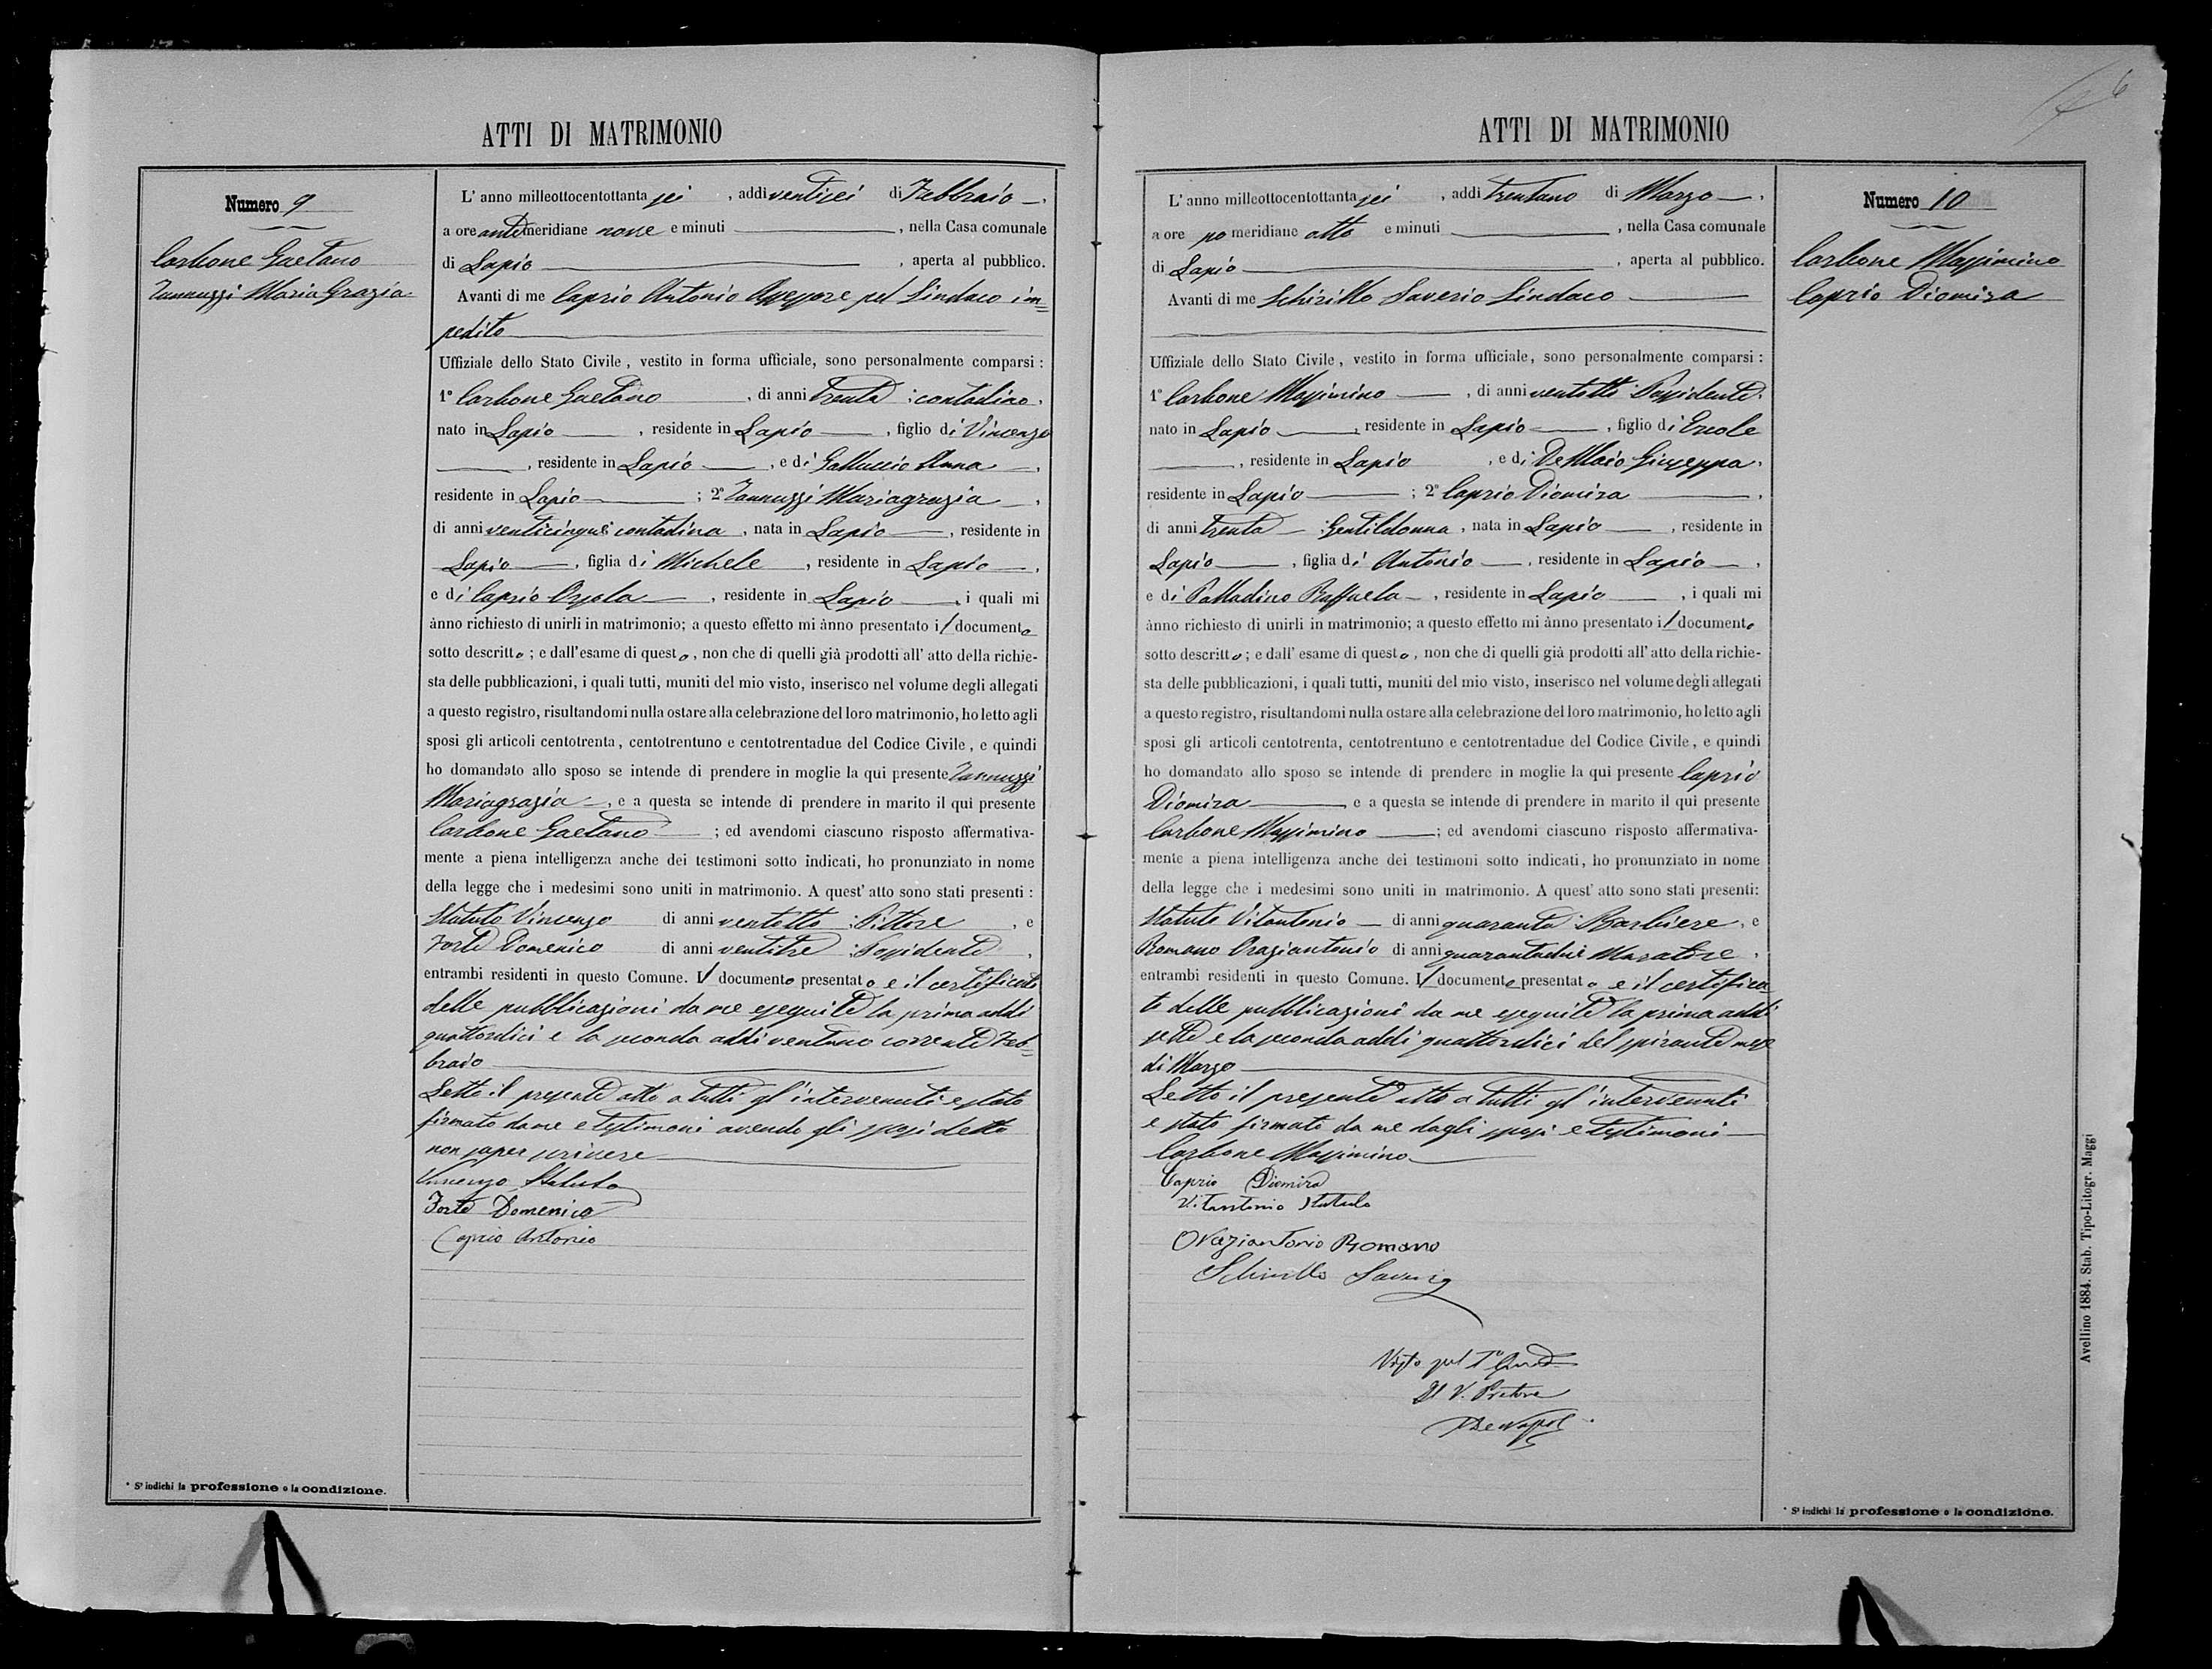 ATTI DI MATRIMONIO
Numero 9
Carbone Gaetano
Iannuzzi Maria Grazia
L' anno milleottocentottanta sei , addi ventisei di Febbraio
a ore antimeridiane nove e minuti , nella Casa comunale
di Lapio , aperta al pubblico.
Avanti di me Caprio Antonio Assessore pel Sindaco im=
pedito
Uffiziale dello Stato Civile, vestito in forma ufficiale, sono personalmente comparsi :
1° Carbone Gaetano , di anni trenta : contadino .
nato in Lapio , residente in Lapio , figlio di Vincenzo
, residente in Lapio , e di Galluccio Anna ,
residente in Lapio ; 2° Iannuzzi Mariagrazia ,
di anni venticinque contadina , nata in Lapio , residente in
Lapio , figlia di Michele , residente in Lapio ,
e di Caprio Orsola , residente in Lapio , i quali mi
ànno richiesto di unirli in matrimonio; a questo effetto mi ànno presentato il documento
sotto descritto ; e dall' esame di questo , non che di quelli già prodotti all' atto della richie-
sta delle pubblicazioni, i quali tutti, muniti del mio visto, inserisco nel volume degli allegati
a questo registro, risultandomi nulla ostare alla celebrazione del loro matrimonio, ho letto agli
sposi gli articoli centotrenta, centotrentuno e centotrentadue del Codice Civile, e quindi
ho domandato allo sposo se intende di prendere in moglie la qui presente Iannuzzi
Mariagrazia , e a questa se intende di prendere in marito il qui presente
Carbone Gaetano ; ed avendomi ciascuno risposto affermativa-
mente a piena intelligenza anche dei testimoni sotto indicati, ho pronunziato in nome
della legge che i medesimi sono uniti in matrimonio. A quest' atto sono stati presenti :
Statuto Vincenzo di anni ventotto : Pittore , e
Forte Domenico di anni ventitre : Possidente ,
entrambi residenti in questo Comune. Il documento presentato e il certificato
delle pubblicazioni da me eseguite la prima addi
quattordici e la seconda addi ventuno corrente Feb=
braio
Letto il presente atto a tutti gl' intervenuti e stato
firmato da me e testimoni avendo gli sposi detto
non saper scrivere
Vincenzo Statuto
Forte Domenico
Caprio Antonio
* Si indichi la professione o la condizione.
ATTI DI MATRIMONIO
6
Numero 10
Carbone Massimino
Caprio Diomira
L' anno milleottocentottanta sei , addi trentuno di Marzo .
a ore po meridiane otto e minuti , nella Casa comunale
di Lapio , aperta al pubblico.
Avanti di me Schirillo Saverio Sindaco
Uffiziale dello Stato Civile, vestito in forma ufficiale, sono personalmente comparsi :
1° Carbone Massimino , di anni ventotto Possidente .
nato in Lapio , residente in Lapio , figlio di Ercole
, residente in Lapio , e di De Maio Giuseppa .
residente in Lapio ; 2° Caprio Diomira ,
di anni trenta Gentildonna , nata in Lapio , residente in
Lapio , figlia di Antonio , residente in Lapio ,
e di Palladino Raffaela , residente in Lapio , i quali mi
ànno richiesto di unirli in matrimonio; a questo effetto mi ànno presentato il documento
sotto descritto ; e dall' esame di questo , non che di quelli già prodotti all' atto della richie-
sta delle pubblicazioni, i quali tutti, muniti del mio visto, inserisco nel volume degli allegati
a questo registro, risultandomi nulla ostare alla celebrazione del loro matrimonio, ho letto agli
sposi gli articoli centotrenta, centotrentuno e centotrentadue del Codice Civile, e quindi
ho domandato allo sposo se intende di prendere in moglie la qui presente Caprio
Diomira , e a questa se intende di prendere in marito il qui presente
Carbone Massimino ; ed avendomi ciascuno risposto affermativa-
mente a piena intelligenza anche dei testimoni sotto indicati, ho pronunziato in nome
della legge che i medesimi sono uniti in matrimonio. A quest' atto sono stati presenti:
Statuto Vitantonio di anni quaranta : Barbiere , e
Romano Oraziantonio di anni quarantadue Muratore ,
entrambi residenti in questo Comune. Il documento presentato e il certifica=
to delle pubblicazioni da me eseguite la prima addi
sette e la seconda addi quattordici del spirante mese
di Marzo
Letto il presente atto a tutti gl' intervenuti
e stato firmato da me dagli sposi e testimoni
Carbone Massimino
Caprio Diomira
Vitantonio Statuto
Oraziantonio Romano
Schirillo Saverio
Visto pel 1°
Il V. Pretore
* Si indichi la professione o la condizione.
Avellino 1884. Stab. Tipo-Litogr. Maggi